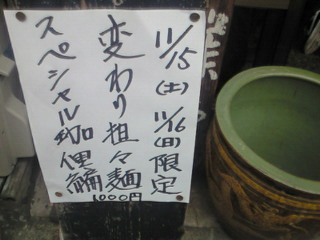 11/15(土)11/16(日)限定
変わり担々麺
スペシャル珈俚麺
1000円